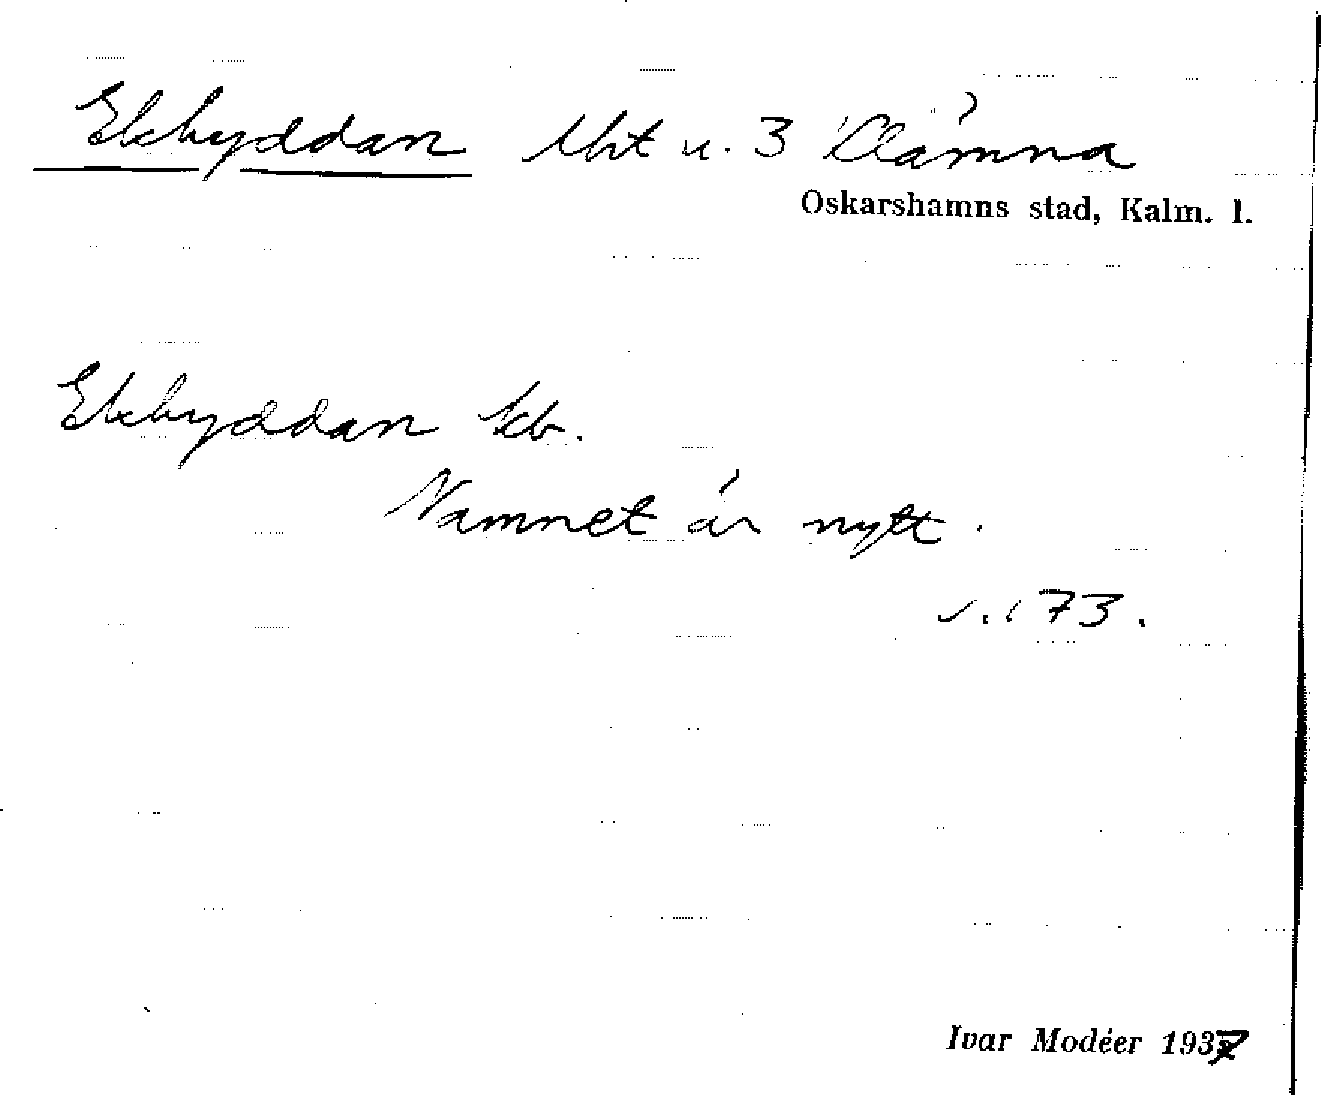 Ekhyddan lht u. 3 Klämna
Oskarshamns stad, Kalm. l.
Ekhyddan kb.
Namnet är nytt.
s. 173.
Ivar Modéer 1937